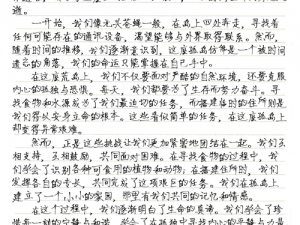 避。
一开始，我们像无头苍蝇一般，在岛上四处奔走，寻找着
任何可能存在的通讯设备，渴望能够与外界取得联系。然而，
随着时间的推移，我们逐渐意识到，这座孤岛似乎是一个被时间
遗忘的角落，我们的命运只能掌握在自己手中。
在这座荒岛上，我们不仅要面对严酷的自然环境，还要克服
内心的孤独与恐惧。每天，我们都要为了生存而努力奋斗。寻
找食物和水源成为了我们最迫切的任务，而搭建临时的住所则是
我们得以安身立命的根本。这些看似简单的任务，在这座孤岛上
却变得异常艰难。
然而，正是这些挑战让我们更加紧密地团结在一起。我们互
相支持，互相鼓励，共同面对困难。在寻找食物的过程中，我
们学会了识别各种可食用的植物和动物。在搭建住所时，我们
发挥各自的专长，共同完成了这项艰巨的任务。我们在孤岛上
建立了一个小小的家园，那里有我们共同的记忆和情感。
在这个过程中，我们逐渐明白了生命的真谛。我们学会了珍
惜每一刻的宁静与和谐，学会了在孤独中寻找内心的平静与力量